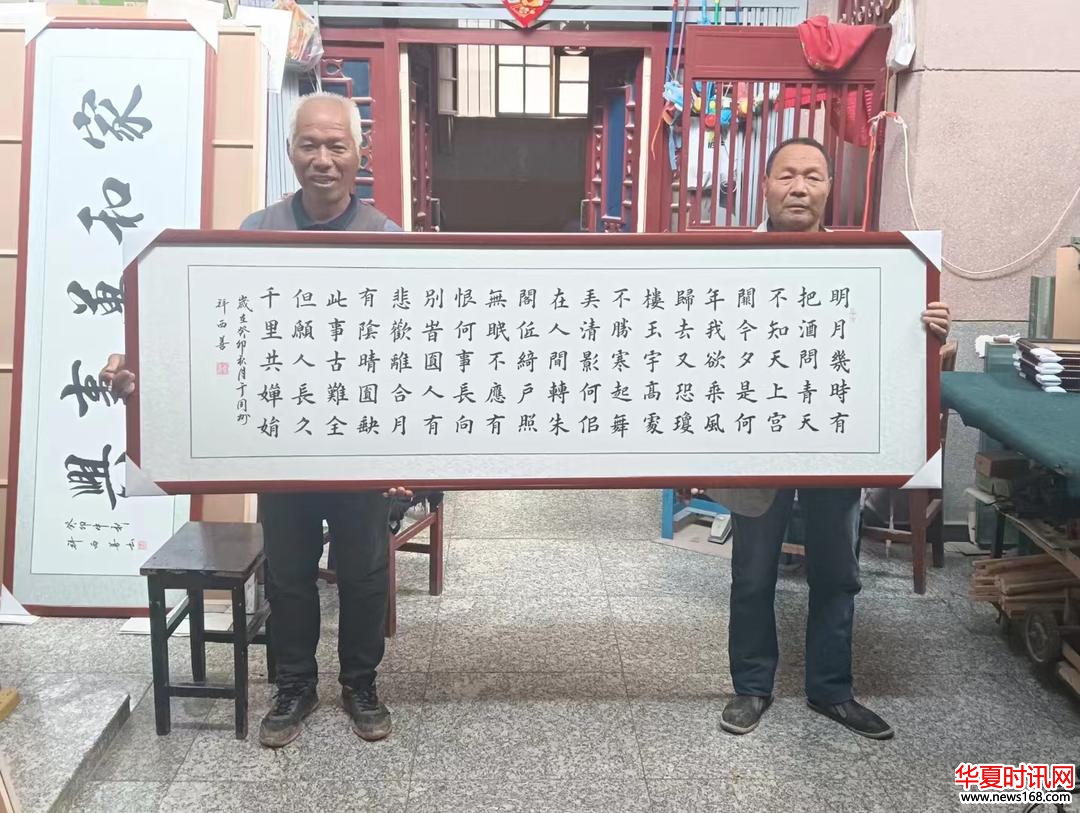 明月幾時有
把酒問青天
不知天上宮
闕今夕是何
年我欲乘風
歸去又恐瓊
樓玉宇高處
不勝寒起舞
弄清影何侣
在人間轉朱
閣低綺戶照
無眠不應有
恨何事長向
别旹圓人有
悲歡離合月
有陰晴圓缺
此事古難全
但願人長久
千里共嬋娟
歲在癸卯秋月于同州
西善
家和萬事興
癸卯年
西善
华夏时讯网
www.news168.com